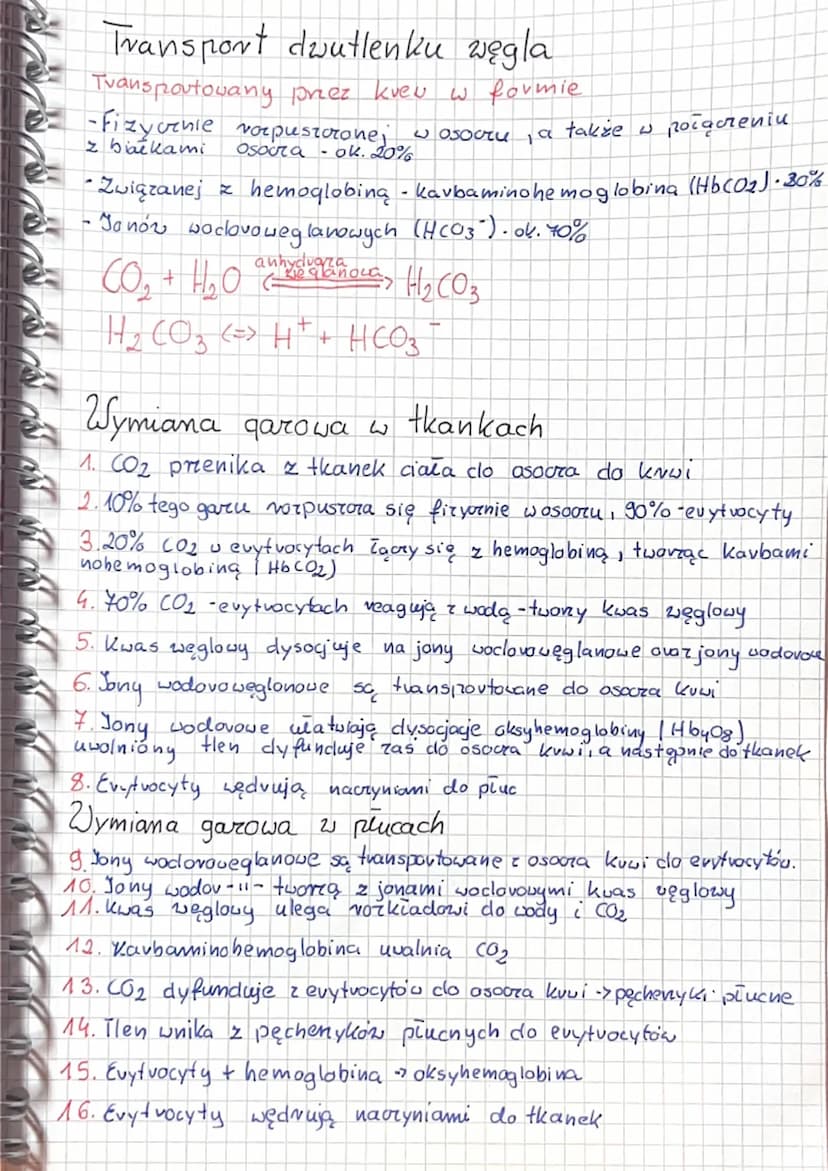 Transport dwutlenku węgla
Transportowany przez krew w formie
- Fizycznie rozpuszczonej w osoczu, a także w połączeniu
z białkami osocza - ok. 20%
- Związanej z hemoglobiną - karbaminohemoglobina (HbCO2) - 20%
- Jonów wodorowęglanowych (HCO3⁻) - ok. 70%
anhydraza
CO2 + H2O <=> węglanowa H2CO3
H2CO3 <=> H⁺ + HCO3⁻
Wymiana gazowa w tkankach
1. CO2 przenika z tkanek ciała do osocza do krwi
2. 10% tego gazu rozpuszcza się fizycznie w osoczu, 90% - erytrocyty
3. 20% CO2 w erytrocytach łączy się z hemoglobiną, tworząc karbami
nohemoglobinę (HbCO2)
4. 70% CO2 - erytrocytach reagują z wodą - tworzy kwas węglowy
5. Kwas węglowy dysocjuje na jony wodorowęglanowe oraz jony wodorowe
6. Jony wodorowęglonowe są transportowane do osocza krwi
7. Jony wodorowe ułatwiają dysocjacje oksyhemoglobiny (Hb4O8)
uwolniony tlen dyfunduje zaś do osocza krwi, a następnie do tkanek
8. Erytrocyty wędrują naczyniami do płuc
Wymiana gazowa w płucach
9. Jony wodorowęglanowe są transportowane z osocza krwi do erytrocytów.
10. Jony wodor-11- tworzą z jonami wodorowymi kwas węglowy
11. Kwas węglowy ulega rozkładowi do wody i CO2
12. Karbaminohemoglobina uwalnia CO2
13. CO2 dyfunduje z erytrocytów do osocza krwi -> pęcherzyki płucne
14. Tlen wnika z pęcherzyków płucnych do erytrocytów
15. Erytrocyty + hemoglobina -> oksyhemoglobina
16. Erytrocyty wędrują naczyniami do tkanek